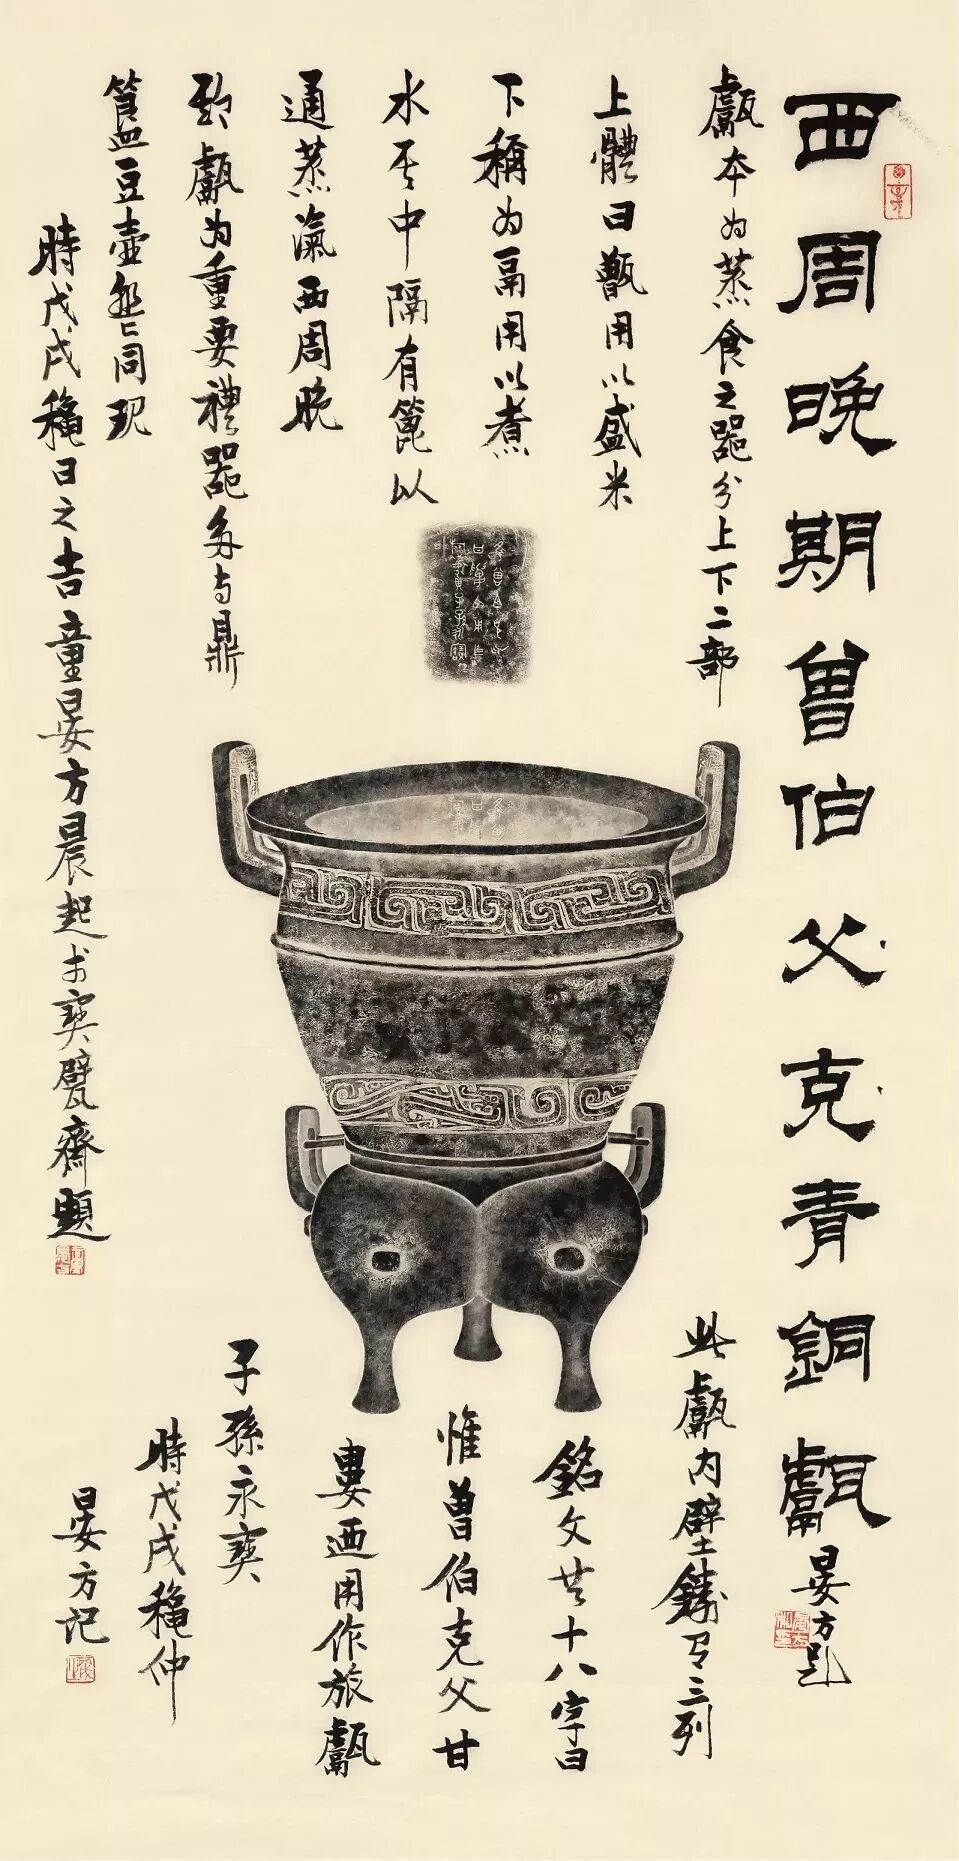 西周晚期曾伯父克青銅甗
晏方題
甗本为蒸食之器分上下二部
上體曰甑用以盛米
下稱为鬲用以煮
水其中隔有箆以
通蒸瀛西周晚
期甗为重要禮器多与鼎
簋豆壺盤同現
時戊戌穐日之吉童晏方晨起於寶甓齋題
此甗內壁鑄有三列
銘文共十八字曰
惟曾伯克父甘
婁迺用作旅甗
子孫永寶
時戊戌穐仲
晏方记